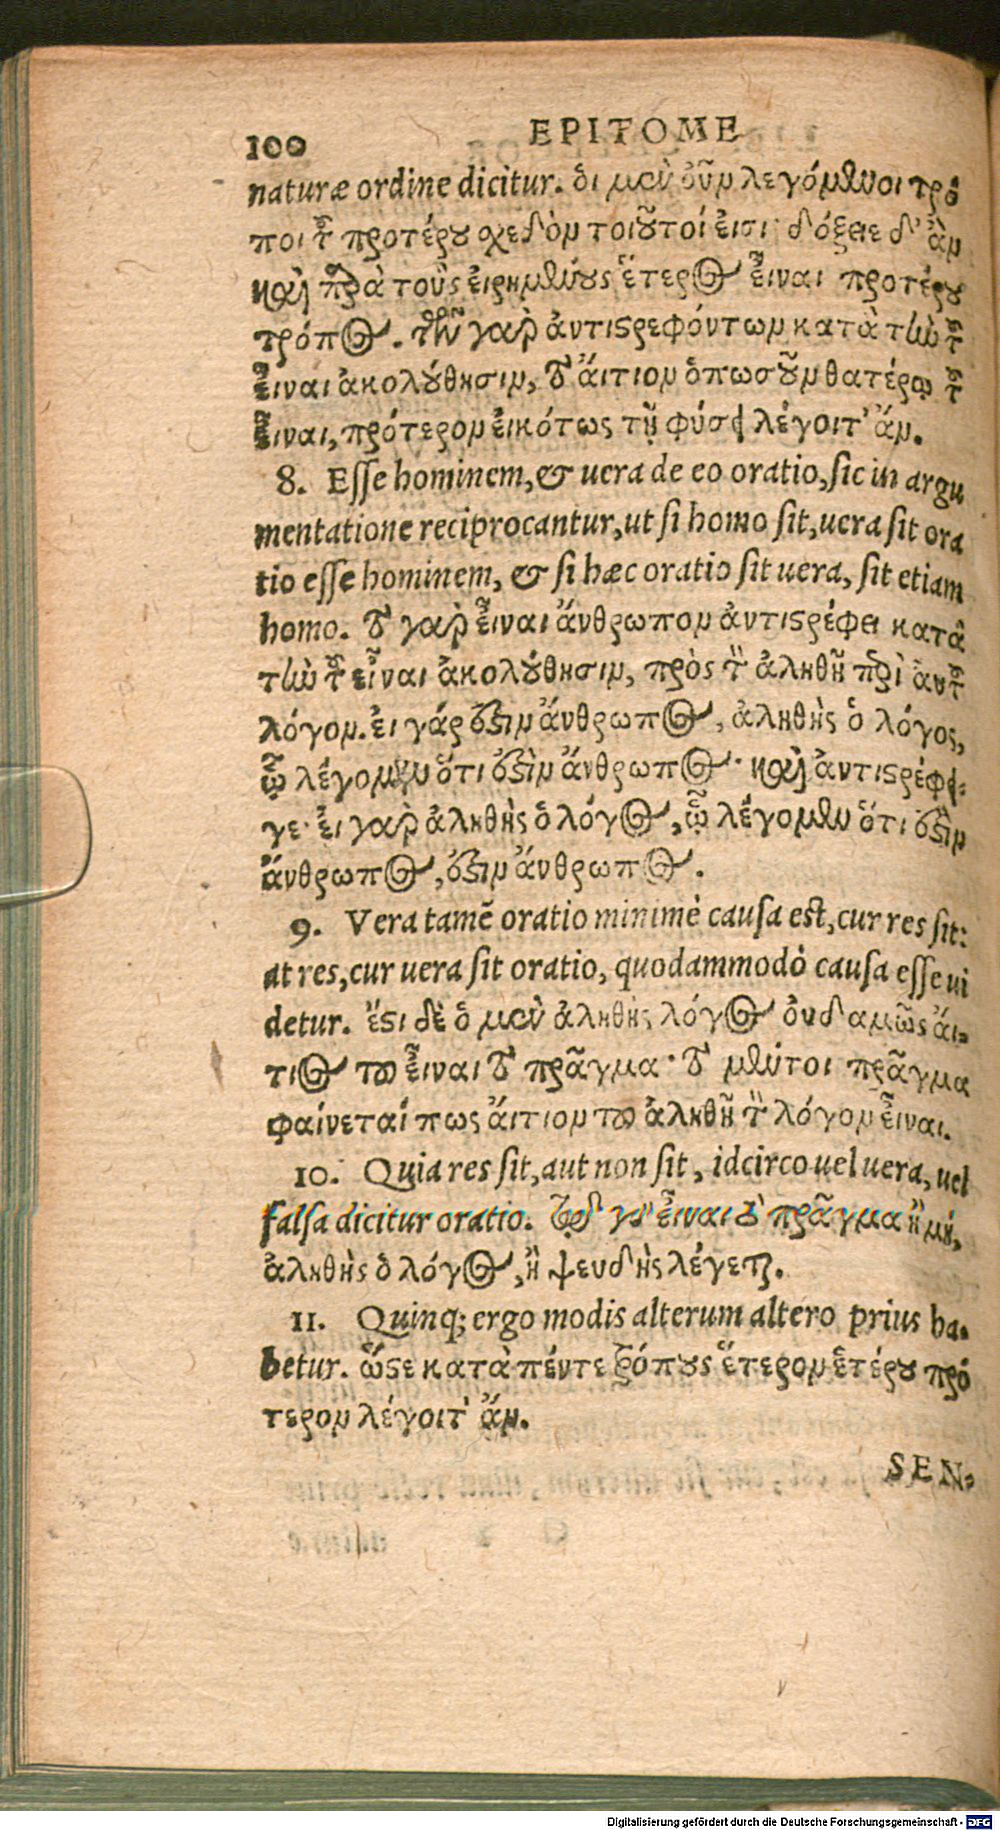 100 EPITOME
naturæ ordine dicitur. ὁι μὲν οὖν λεγόμενοι τρό
ποι τοῦ προτέρου σχεδὸν τοιοῦτοί ἐισι· δόξειε δ' ἂν
καὶ παρὰ τοὺς ἐιρημένους ἕτερος εἶναι προτέρου
τρόπος. τῶν γὰρ ἀντιστρεφόντων κατὰ τὴν τοῦ
εἶναι ἀκολούθησιν, τὸ ἄιτιον ὁπωσοῦν θατέρῳ τοῦ
εἶναι, πρότερον ἐικότως τῇ φύσει λέγοιτ' ἄν.
8. Esse hominem, & uera de eo oratio, sic in argu
mentatione reciprocantur, ut si homo sit, uera sit ora
tio esse hominem, & si hæc oratio sit uera, sit etiam
homo. τὸ γὰρ εἶναι ἄνθρωπον ἀντιστρέφει κατὰ
τὴν τοῦ εἶναι ἀκολούθησιν, πρὸς τὸν ἀληθῆ περὶ αὐτοῦ
λόγον. ἐι γάρ ἐστιν ἄνθρωπος, ἀληθὴς ὁ λόγος,
ᾧ λέγομεν ὅτι ἐστὶν ἄνθρωπος· καὶ ἀντιστρέφει·
γε· ἐι γὰρ ἀληθὴς ὁ λόγος, ᾧ λέγομεν ὅτι ἐστὶν
ἄνθρωπος, ἐστιν ἄνθρωπος.
9. Vera tamē oratio minimè causa est, cur res sit:
at res, cur uera sit oratio, quodammodò causa esse ui
detur. ἔστι δὲ ὁ μὲν ἀληθὴς λόγος ὀυδαμῶς ἄι-
τιος τοῦ εἶναι τὸ πρᾶγμα· τὸ μέντοι πρᾶγμα
φαίνεταί πως ἄιτιον τοῦ ἀληθῆ τὸν λόγον εἶναι.
10. Quia res sit, aut non sit, idcirco uel uera, uel
falsa dicitur oratio. τῷ γὰρ εἶναι τὸ πρᾶγμα ἢ μή,
ἀληθὴς ὁ λόγος, ἢ ψευδὴς λέγεται.
11. Quinq; ergo modis alterum altero prius ha-
betur. ὥστε κατὰ πέντε τρόπους ἕτερον ἑτέρου πρό
τερον λέγοιτ' ἄν.
SEN-
Digitalisierung gefördert durch die Deutsche Forschungsgemeinschaft - DFG